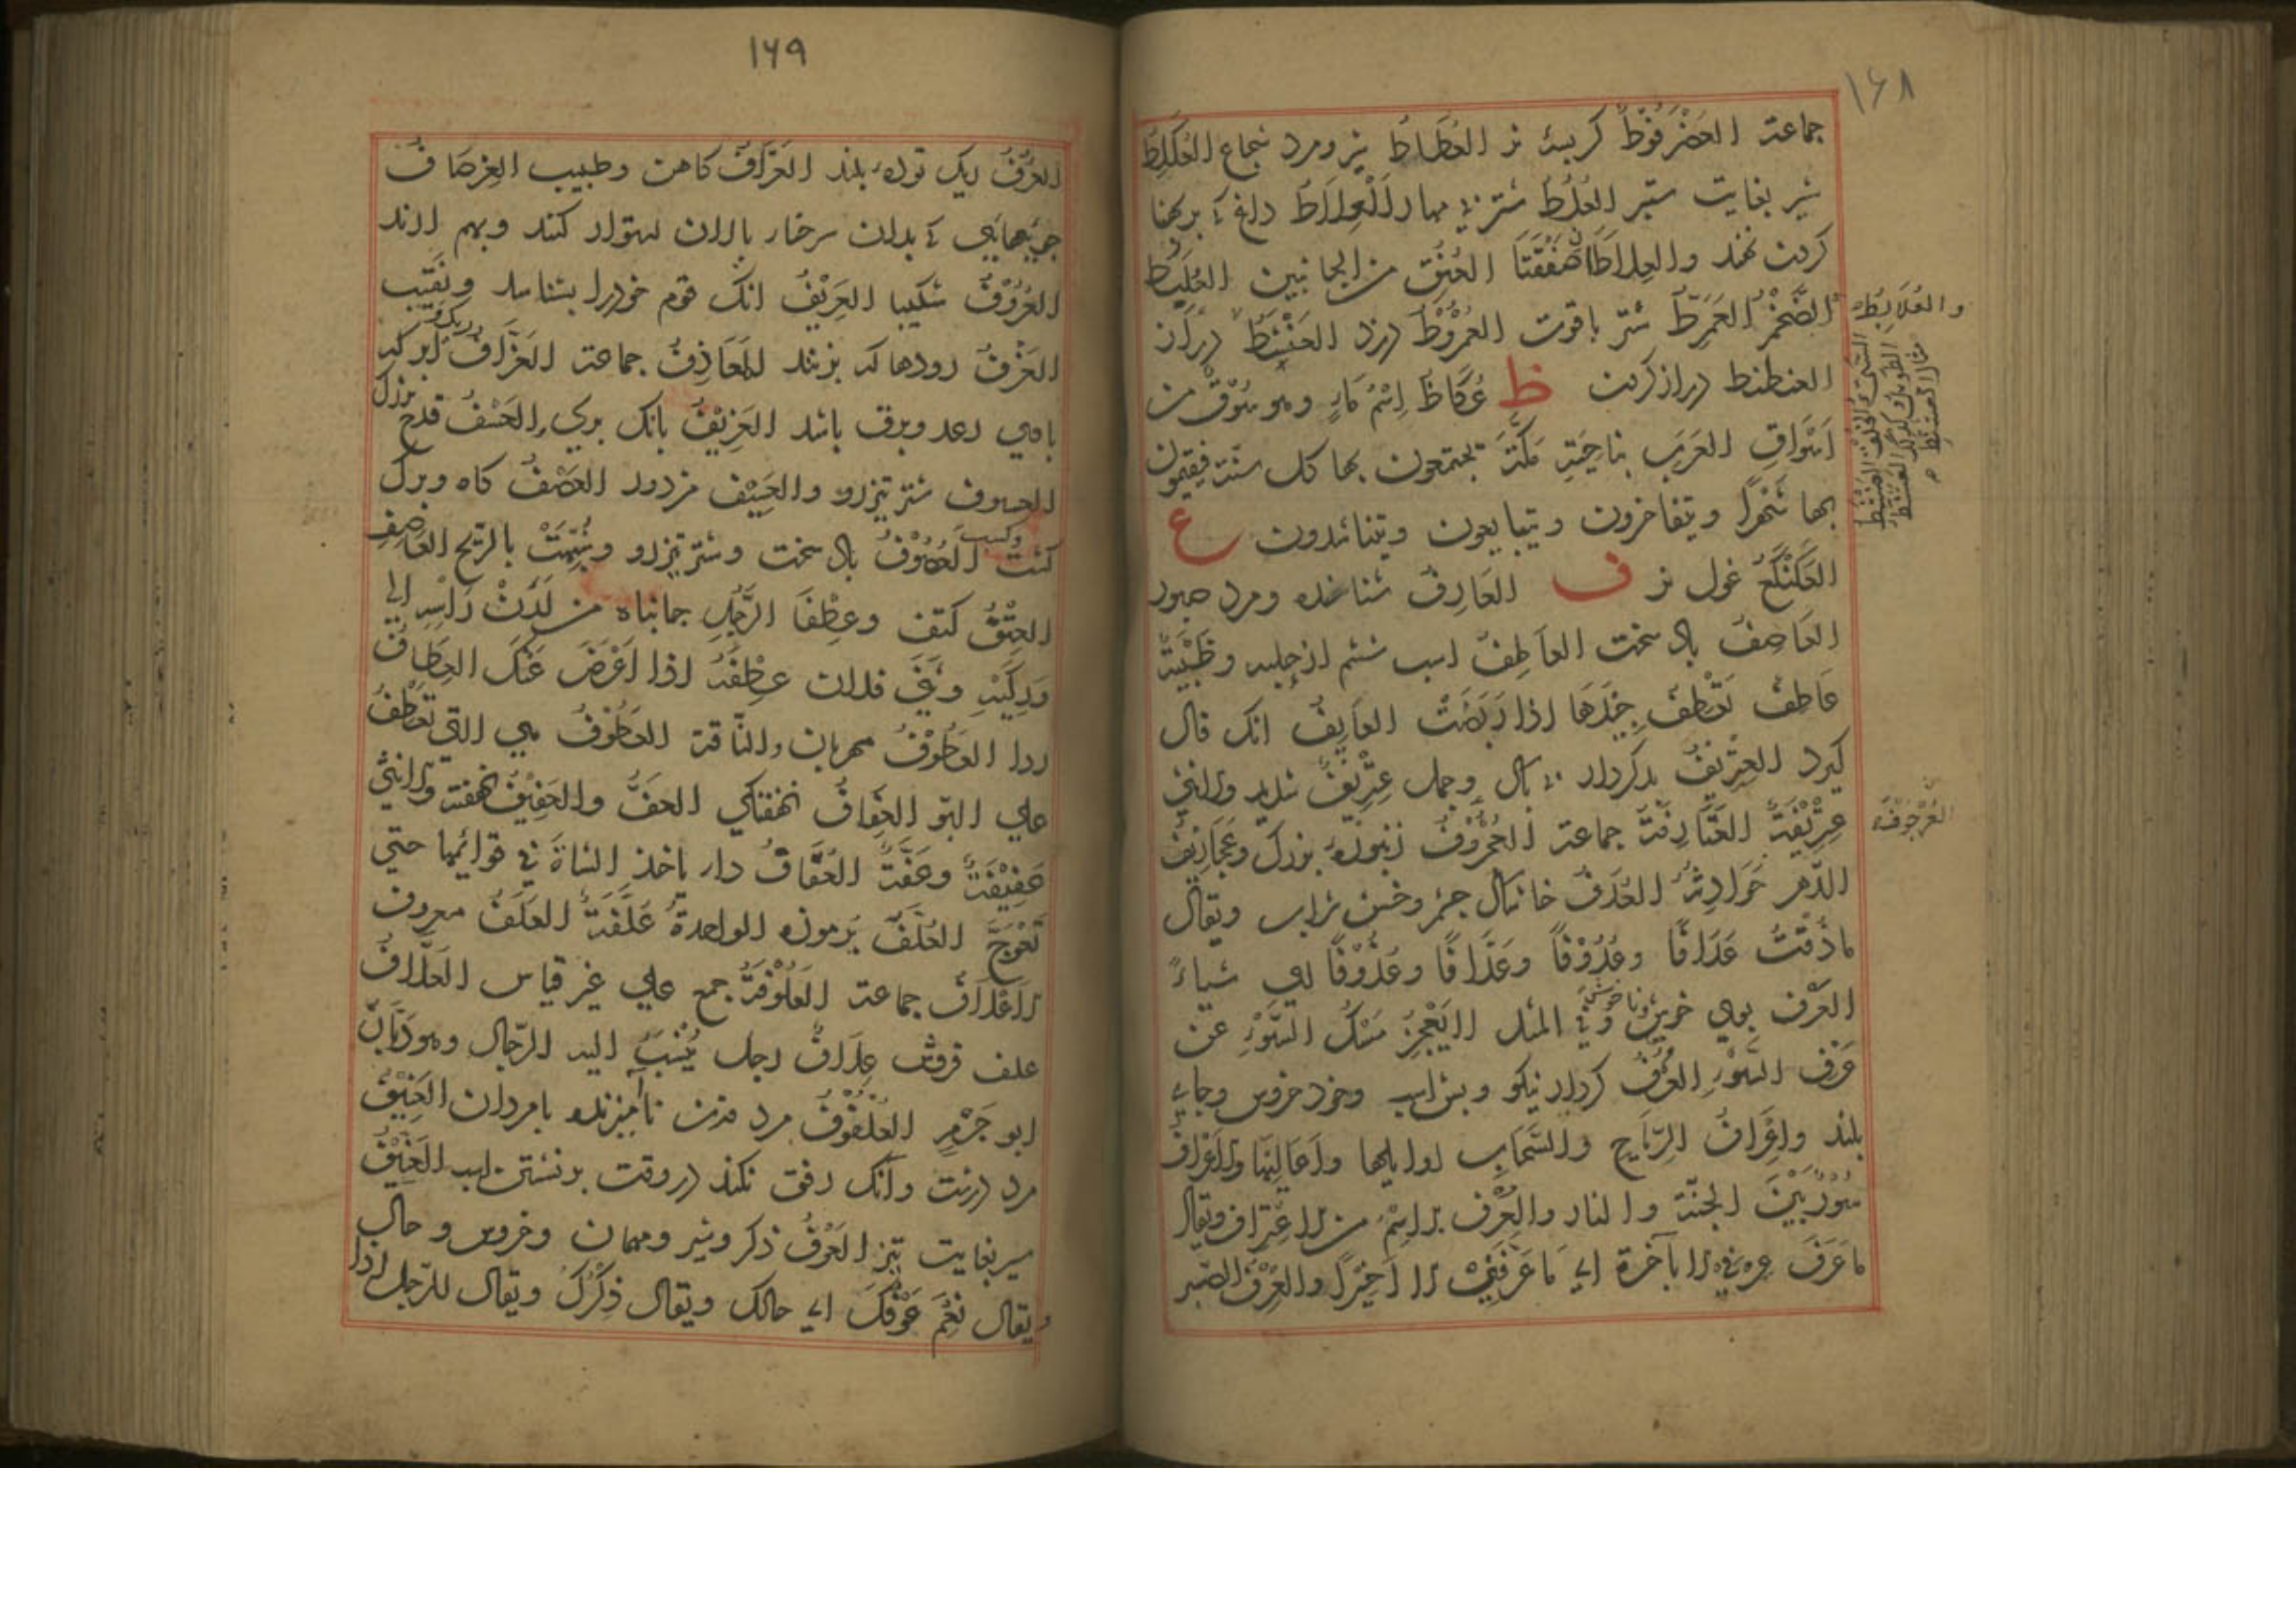 ١٦٨
جماعت العَضْرَفُوْطُ كربسهٔ نر العُطَاطُ شير ومرد شجاع العُكَلِطُ
شير بغايت ستبر العُلُطُ شتر بي مهار اَلْعِلَاطُ داغ كه بر پهنا
كردن نهند والعِلاطَان صَفْقَتَا العُنُق من الجانبين العُلَبِطُ
والعُلَابِطُ
الضَّخْمُ العَمَرَّطُ شتر باقوت العُمْرُوْطُ دزد العَنْشَطُ دراز
العنطنط دراز كردن ظ عُكَاظُ اِسْمُ مَاءٍ وهو سُوْقٌ من
اَسْوَاقِ العَرَبِ بناحِيَةِ مَكَّةَ يجتمعون بها كل سنّة فيقيمون
بها شَهْرًا ويتفاخرون ويتبايعون ويتناشدون ع
العَكَنْكَعُ غول نر ف العَارِفُ شناسنده ومرد صبور
العَاصِفُ باد سخت العَاطِفُ اسب ششم از جلبه وظَبْيَةٌ
عَاطِفٌ تَعْطِفُ جِيْدَهَا اذا رَبَضَتْ العَايِفُ انك فال
كيرد العِتْرِيْفُ بدكردار بي باك وجمل عِتْرِيْفٌ شديد والانثى
عِتْرِيْفَةٌ العَتَارِفَةُ جماعت العُجْرُوْفُ زنبوره بزرك وعَجَارِيْفُ
العُرْجُوْفَةُ
الدّهر حَوَادِثُهُ العُدَفُ خاشاك چشم وخس شراب ويقال
مَا ذُقْتُ عَدَافًا وعُدُوْفًا وعَذَافًا وعُذُوْفًا اي شياءً
العَرْف بوي خوش وناخوش وفي المثل لا يَعْجِزُ مَسْكُ السَّوْءِ عن
عَرْف السَّوْءِ العُرْفُ كردار نيكو وبش اسب وخود خروس وجاي
بلند واعْرَافُ الرِّيَاحِ والسَّحَابِ اوايلها واَعَالِيْهَا والاَعْرَافُ
سُوْرٌ بَيْنَ الجنّة والنار والعُرْف اِسْمٌ من الاعْتِرَاف ويقال
مَا عَرَفَ عِرْفي الا بآخرة اي مَا عَرَفَنِيْ الا اَخِيْرًا والعِرْفُ الصّبر
١٦٩
العُرُفُ ريك توده بلند العَرَّافُ كاهن وطبيب العِرْصَافُ
چيزهايي كه بدان سرخار پالان استوار كنند وبهم ارند
العَرُوْفُ شكيبا العَرِيْفُ انك قوم خودرا بشناسد ونَقِيْب
العَزْفُ رودها كه بزنند المَعَازِفُ جماعت العَزَّافُ ابر كه
باوي رعد وبرق باشد العَزِيْفُ بانك پري العَسْفُ قدح بزرك
العسوف شتر تيزرو والعَسِيْف مزدور العَصْفُ كاه وبرك
كشت وكسب العَصُوْفُ باد سخت وشتر تيزرو وشُبِّهَتْ بالرّيح العاصِفِ
العِتْقُ كتف وعِطْفَا الرَّجُلِ جانباه من لَدُنْ رَاْسِهِ الي
وَرِكَيْهِ وثَنَى فلان عِطْفَهُ اذا اَعْرَضَ عَنْكَ العِطَافُ
ردا العَطُوْفُ مهربان والنّاقة العَطُوْفُ هي التي تَعْطِفُ
علي البوّ العَفَافُ نهفتكي العَفُّ والعَفِيْفُ نهفته والانثى
عَفِيْفَةٌ وعَفَّةٌ العُقَافُ دار ياخذ الشاة في قوائمها حتي
تَعْوَجَّ العُلَّفُ بَرموزه الواحدةُ عُلَّفَةٌ العَلَفُ معروف
الاَعْلَافُ جماعت العَلُوْفَةُ جمع علي غير قياس العَلَّافُ
علف فروش عِلَافٌ رجل يُنْسَبُ اليه الرّحال وهو رَبَّانُ
ابو جَرْمٍ العُلْفُوْفُ مرد نآميزنده بامردان العَنِيْفُ
مرد درشت وآنك رفق نكند در وقت برنشتن اسب العَنِيْقُ
سير بغايت تيز العَوْفُ ذكر وشير ومهمان وخروس وحال
ويقال نَعِمَ عَوْفُكَ اي حالك ويقال ذِكْرُكَ ويقال للرّجل اذا